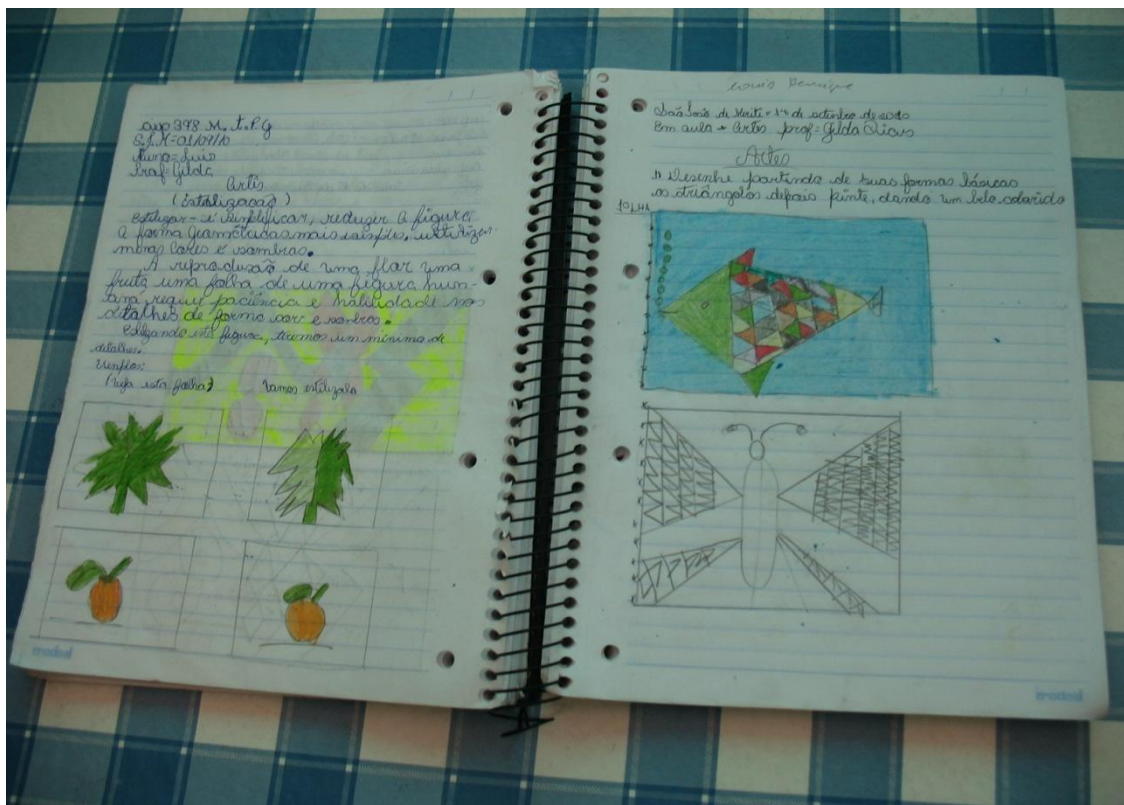 ciep 398 M. A. P. G
S.J.M=01/09/10
Aluno=Luis
Praf=Gilda
Artis
(Estilizacaõ)
Estilizar = é simplificar, reduzir a figura,
a forma geométricas mais simples, utilizar
menos cores e sombras.
A reprodusão de uma flor uma
fruta uma folha de uma figura hum-
tana requer paciência e habilidade nos
detalhes de forma cor e sombras.
esta figura, teremos um mínimo de
detalhes.
(veja esta folha) Vamos estilizala
credeal
Louis Henrique
São João de Meriti = de setembro de 2010
Em aula = Artis prof=Gilda
Artes
1) Desenhe partindo de suas formas básicas
os triângulos depois pinte, dando um belo colorido
credeal